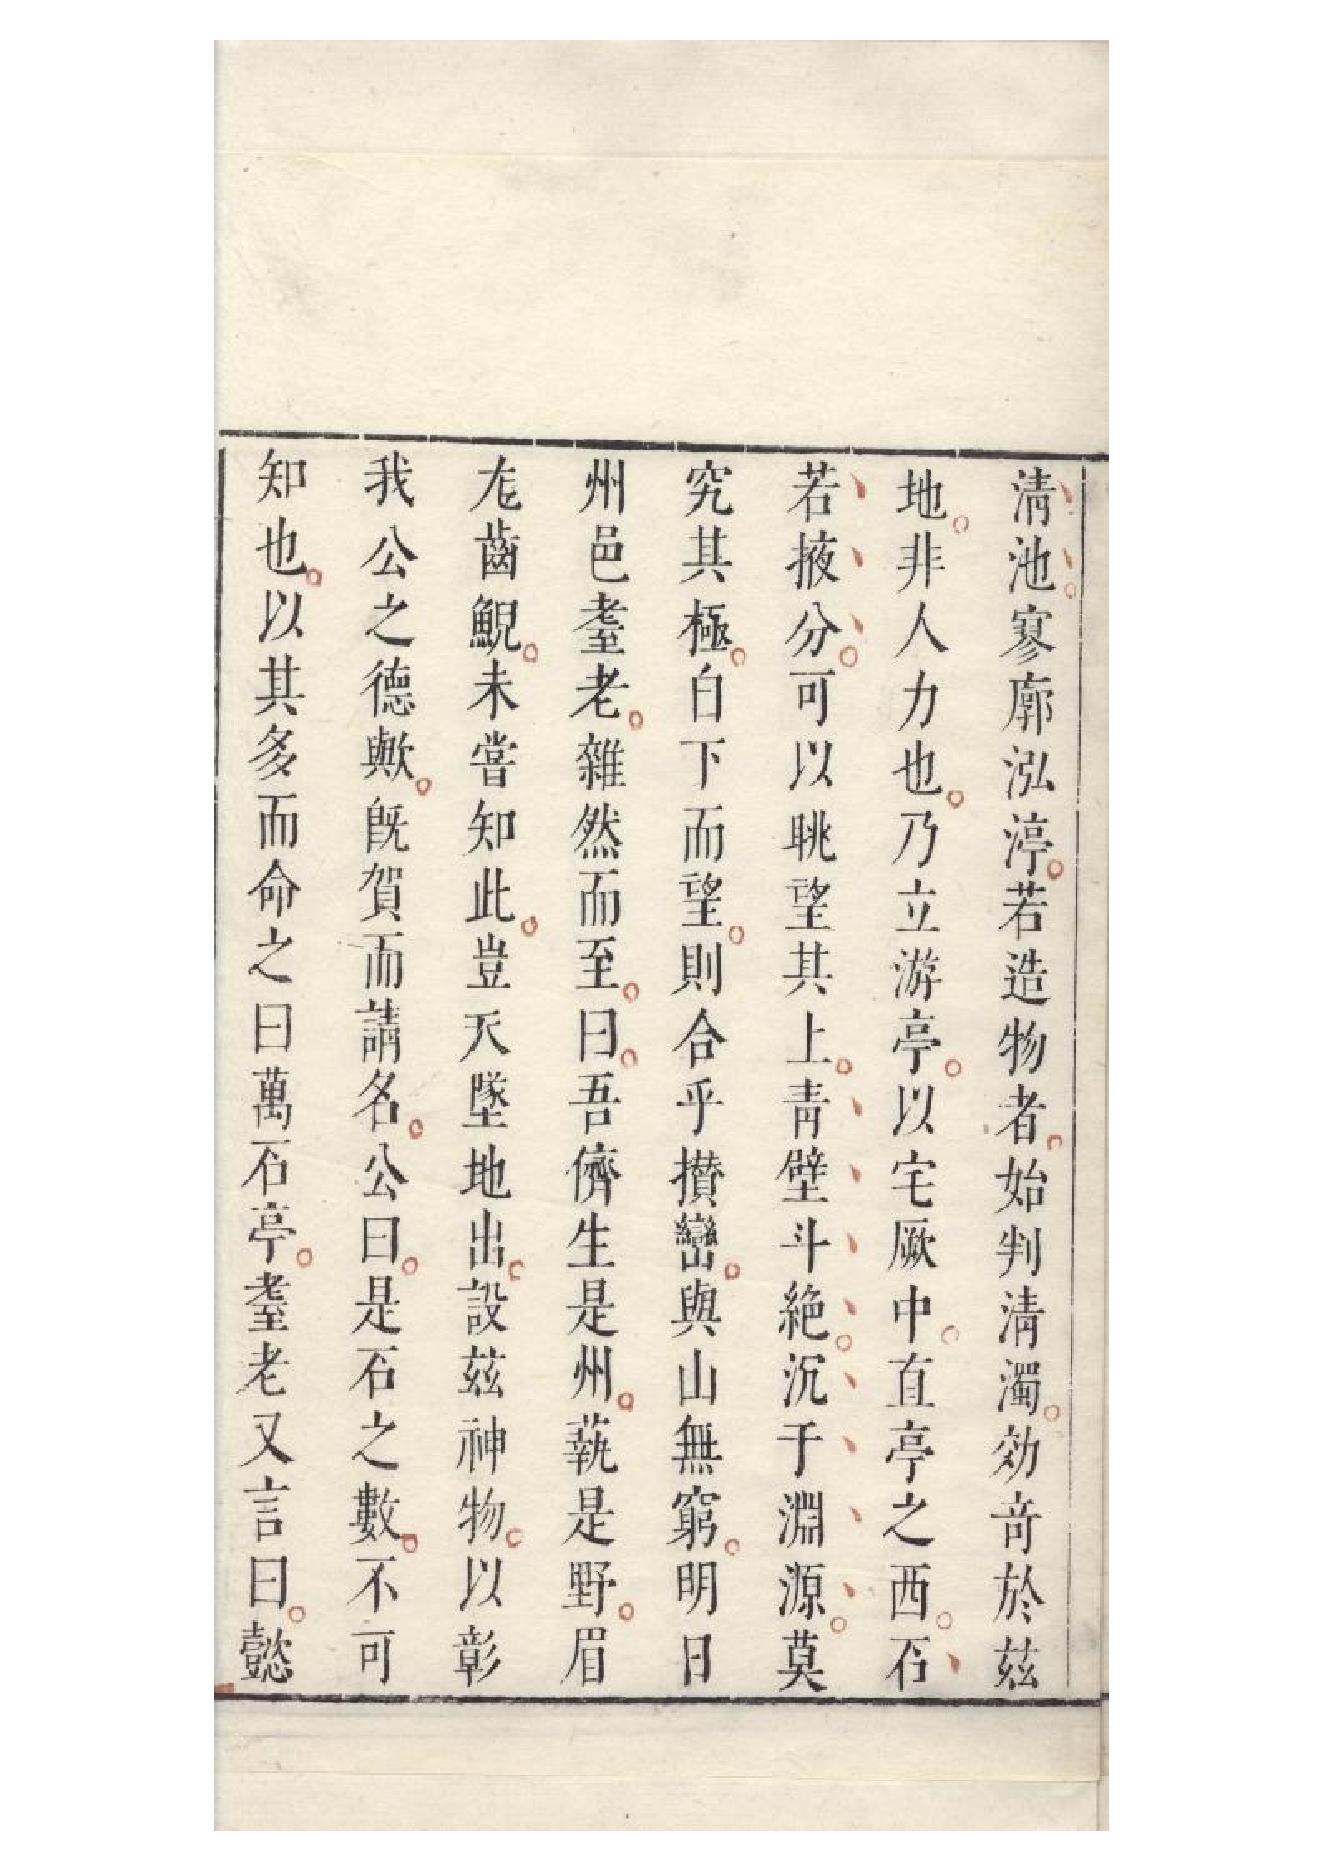 清池寥廓泓渟。若造物者。始判清濁。効奇於茲
地。非人力也。乃立游亭。以宅厥中。直亭之西。石
若掖分。可以眺望其上。青壁斗絶。沉于淵源。莫
究其極。自下而望。則合乎攅巒。與山無窮。明日
州邑耋老。雜然而至。曰。吾儕生是州。蓺是野。眉
尨齒鯢。未嘗知此。豈天墜地出。設茲神物。以彰
我公之德歟。旣賀而請名。公曰。是石之數。不可
知也。以其多而命之曰萬石亭。耋老又言曰。懿